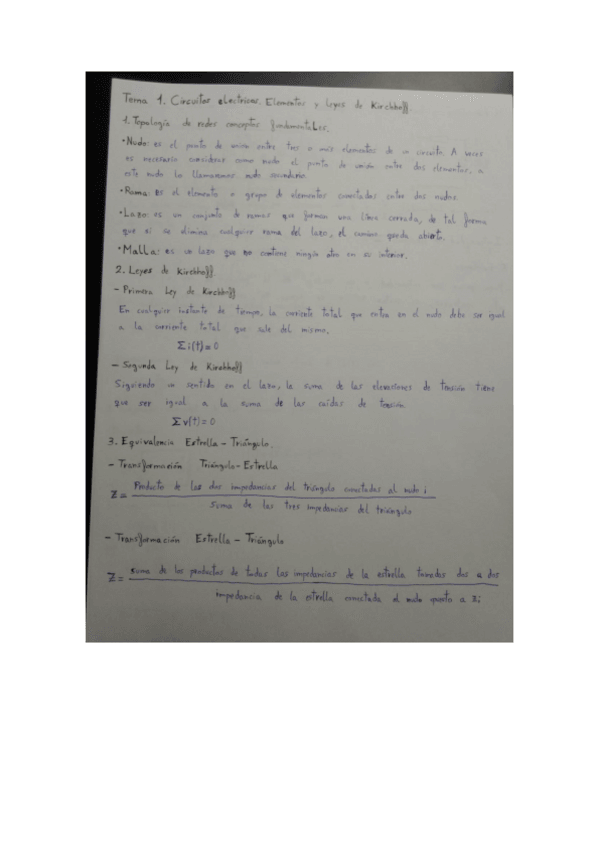 Tema 1. Circuitos electricos. Elementos y Leyes de Kirchhoff.
1. Topología de redes conceptos fundamentales.
• Nudo: es el punto de unión entre tres o más elementos de un circuito. A veces
es necesario considerar como nudo el punto de unión entre dos elementos, a
este nudo lo llamaremos nudo secundario.
• Rama: es el elemento o grupo de elementos conectados entre dos nudos.
• Lazo: es un conjunto de ramas que forman una línea cerrada, de tal forma
que si se elimina cualquier rama del lazo, el camino queda abierto.
• Malla: es un lazo que no contiene ningún otro en su interior.
2. Leyes de Kirchhoff.
- Primera Ley de Kirchhoff
En cualquier instante de tiempo, la corriente total que entra en el nudo debe ser igual
a la corriente total que sale del mismo.
Σi(t)=0
- Segunda Ley de Kirchhoff
Siguiendo un sentido en el lazo, la suma de las elevaciones de tensión tiene
que ser igual a la suma de las caídas de tensión.
Σv(t)=0
3. Equivalencia Estrella - Triángulo.
- Transformación Triángulo - Estrella
Z = Producto de las dos impedancias del triángulo conectadas al nudo i
Suma de las tres impedancias del triángulo
- Transformación Estrella - Triángulo
Z = suma de los productos de todas las impedancias de la estrella tomadas dos a dos
impedancia de la estrella conectada al nudo opuesto a Zi